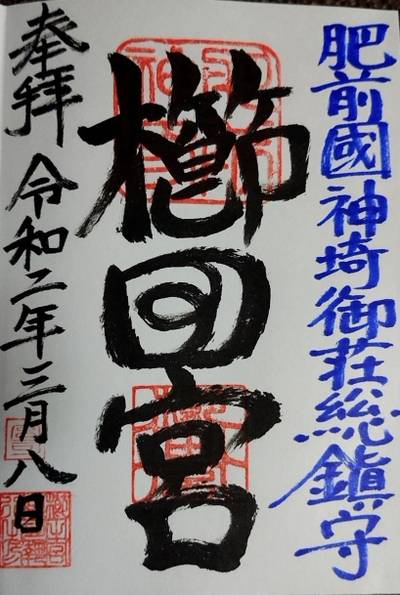 肥前國神埼御荘総鎮守
櫛田宮
奉拝 令和二年三月八日